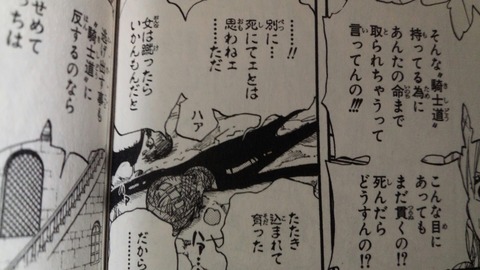 そんな〝騎士道〟
持ってる為に
あんたの命まで
取られちゃうって
言ってんの!!!
こんな目に
あっても
まだ貫くの!?
死んだら
どうすんの!?
……!!
別に…
死にてェとは
思わねェ
……ただ
ハァ
たたき
込まれて
育った
ハァ…
女は蹴ったら
いかんもんだと
………
だから
逃げ出す事も
〝騎士道〟に
反するのなら
せめて